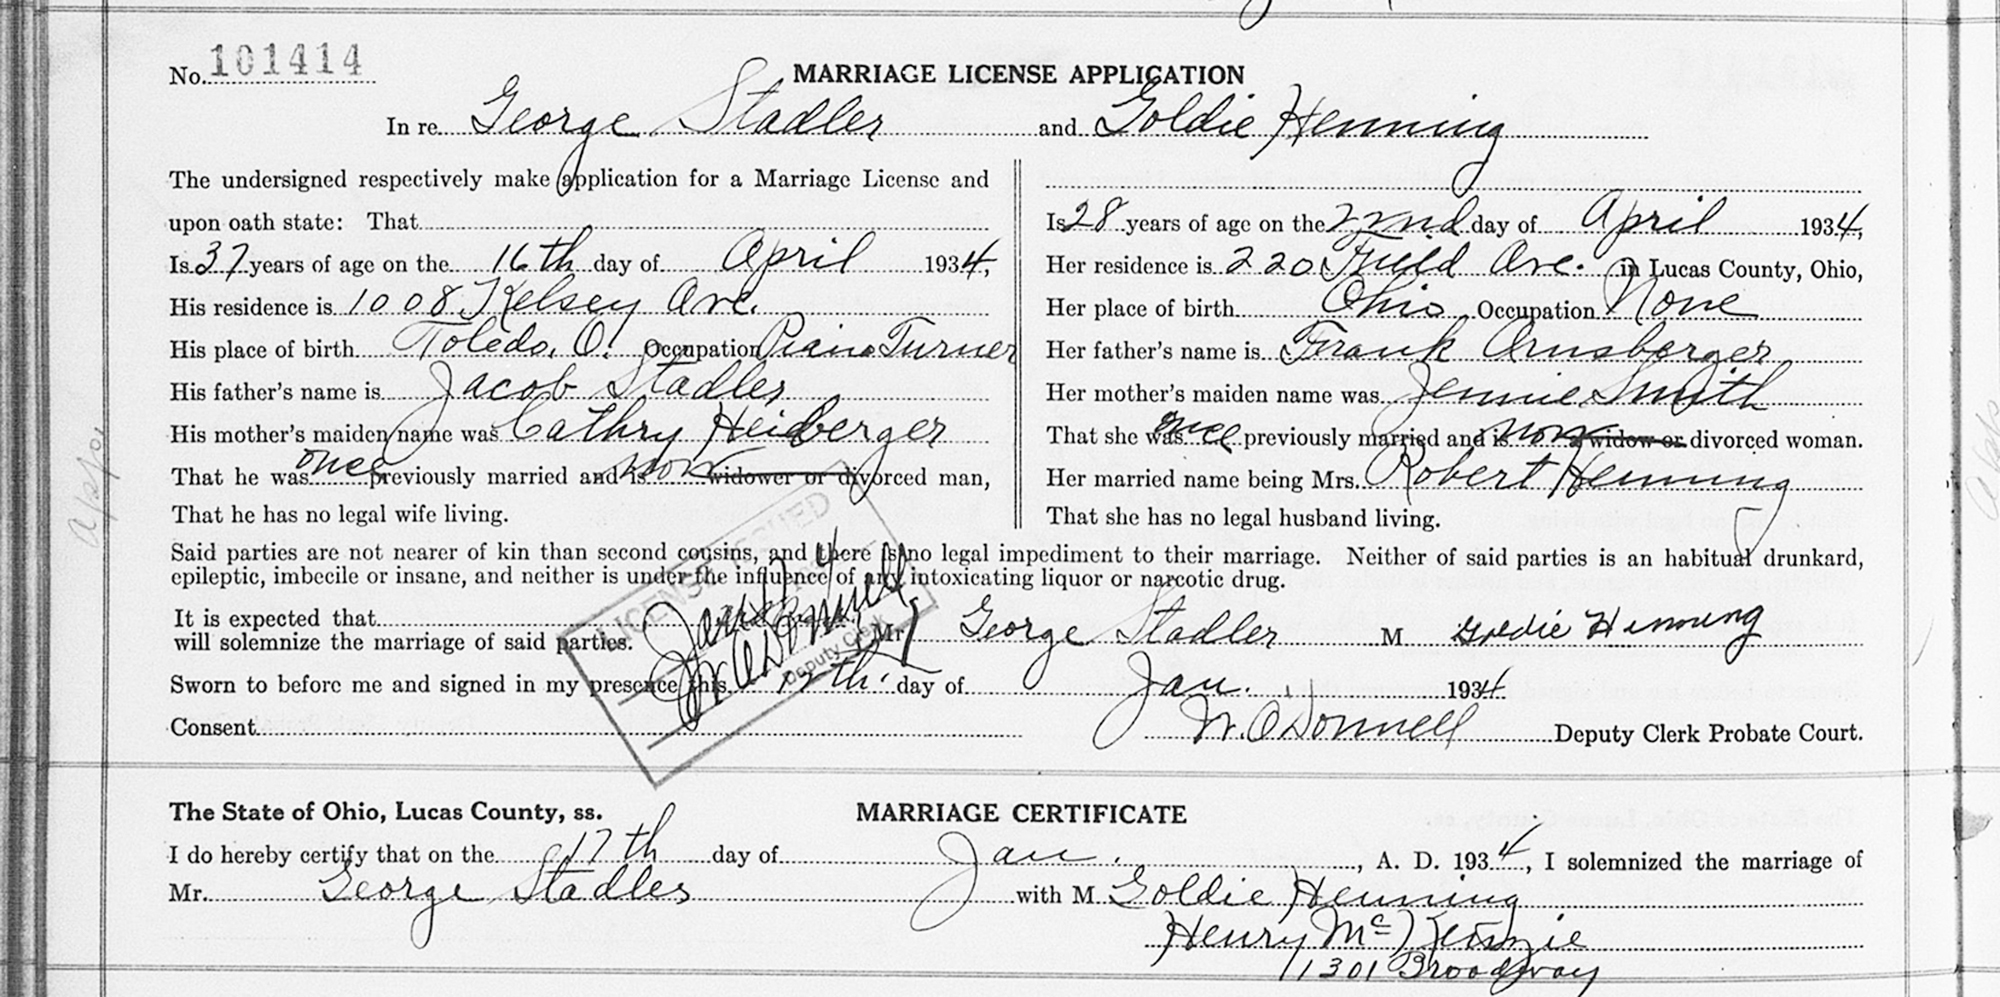 No. 101414
MARRIAGE LICENSE APPLICATION
In re George Stadler and Goldie Henning
The undersigned respectively make application for a Marriage License and
upon oath state: That
Is 37 years of age on the 16th day of April 1934,
His residence is 1008 Kelsey Ave.
His place of birth Toledo, O. Occupation Piano Turner
His father's name is Jacob Stadler
His mother's maiden name was Cathry Heidberger
That he was once previously married and is now widower or divorced man,
That he has no legal wife living.
Is 28 years of age on the 22nd day of April 1934,
Her residence is 220 Field Ave. in Lucas County, Ohio,
Her place of birth Ohio Occupation None
Her father's name is Frank Arnsberger
Her mother's maiden name was Jennie Smith
That she was once previously married and is now a widow or divorced woman.
Her married name being Mrs. Robert Henning
That she has no legal husband living.
Said parties are not nearer of kin than second cousins, and there is no legal impediment to their marriage. Neither of said parties is an habitual drunkard,
epileptic, imbecile or insane, and neither is under the influence of any intoxicating liquor or narcotic drug.
It is expected that
will solemnize the marriage of said parties.
LICENSE ISSUED
Jan 17
W. O'Donnell
Deputy Clerk
Mr George Stadler M Goldie Henning
Sworn to before me and signed in my presence this 17th day of Jan. 1934
Consent W. O'Donnell Deputy Clerk Probate Court.
The State of Ohio, Lucas County, ss. MARRIAGE CERTIFICATE
I do hereby certify that on the 17th day of Jan. , A. D. 1934, I solemnized the marriage of
Mr. George Stadler with M Goldie Henning
Henry McKenzie
1301 Broadway